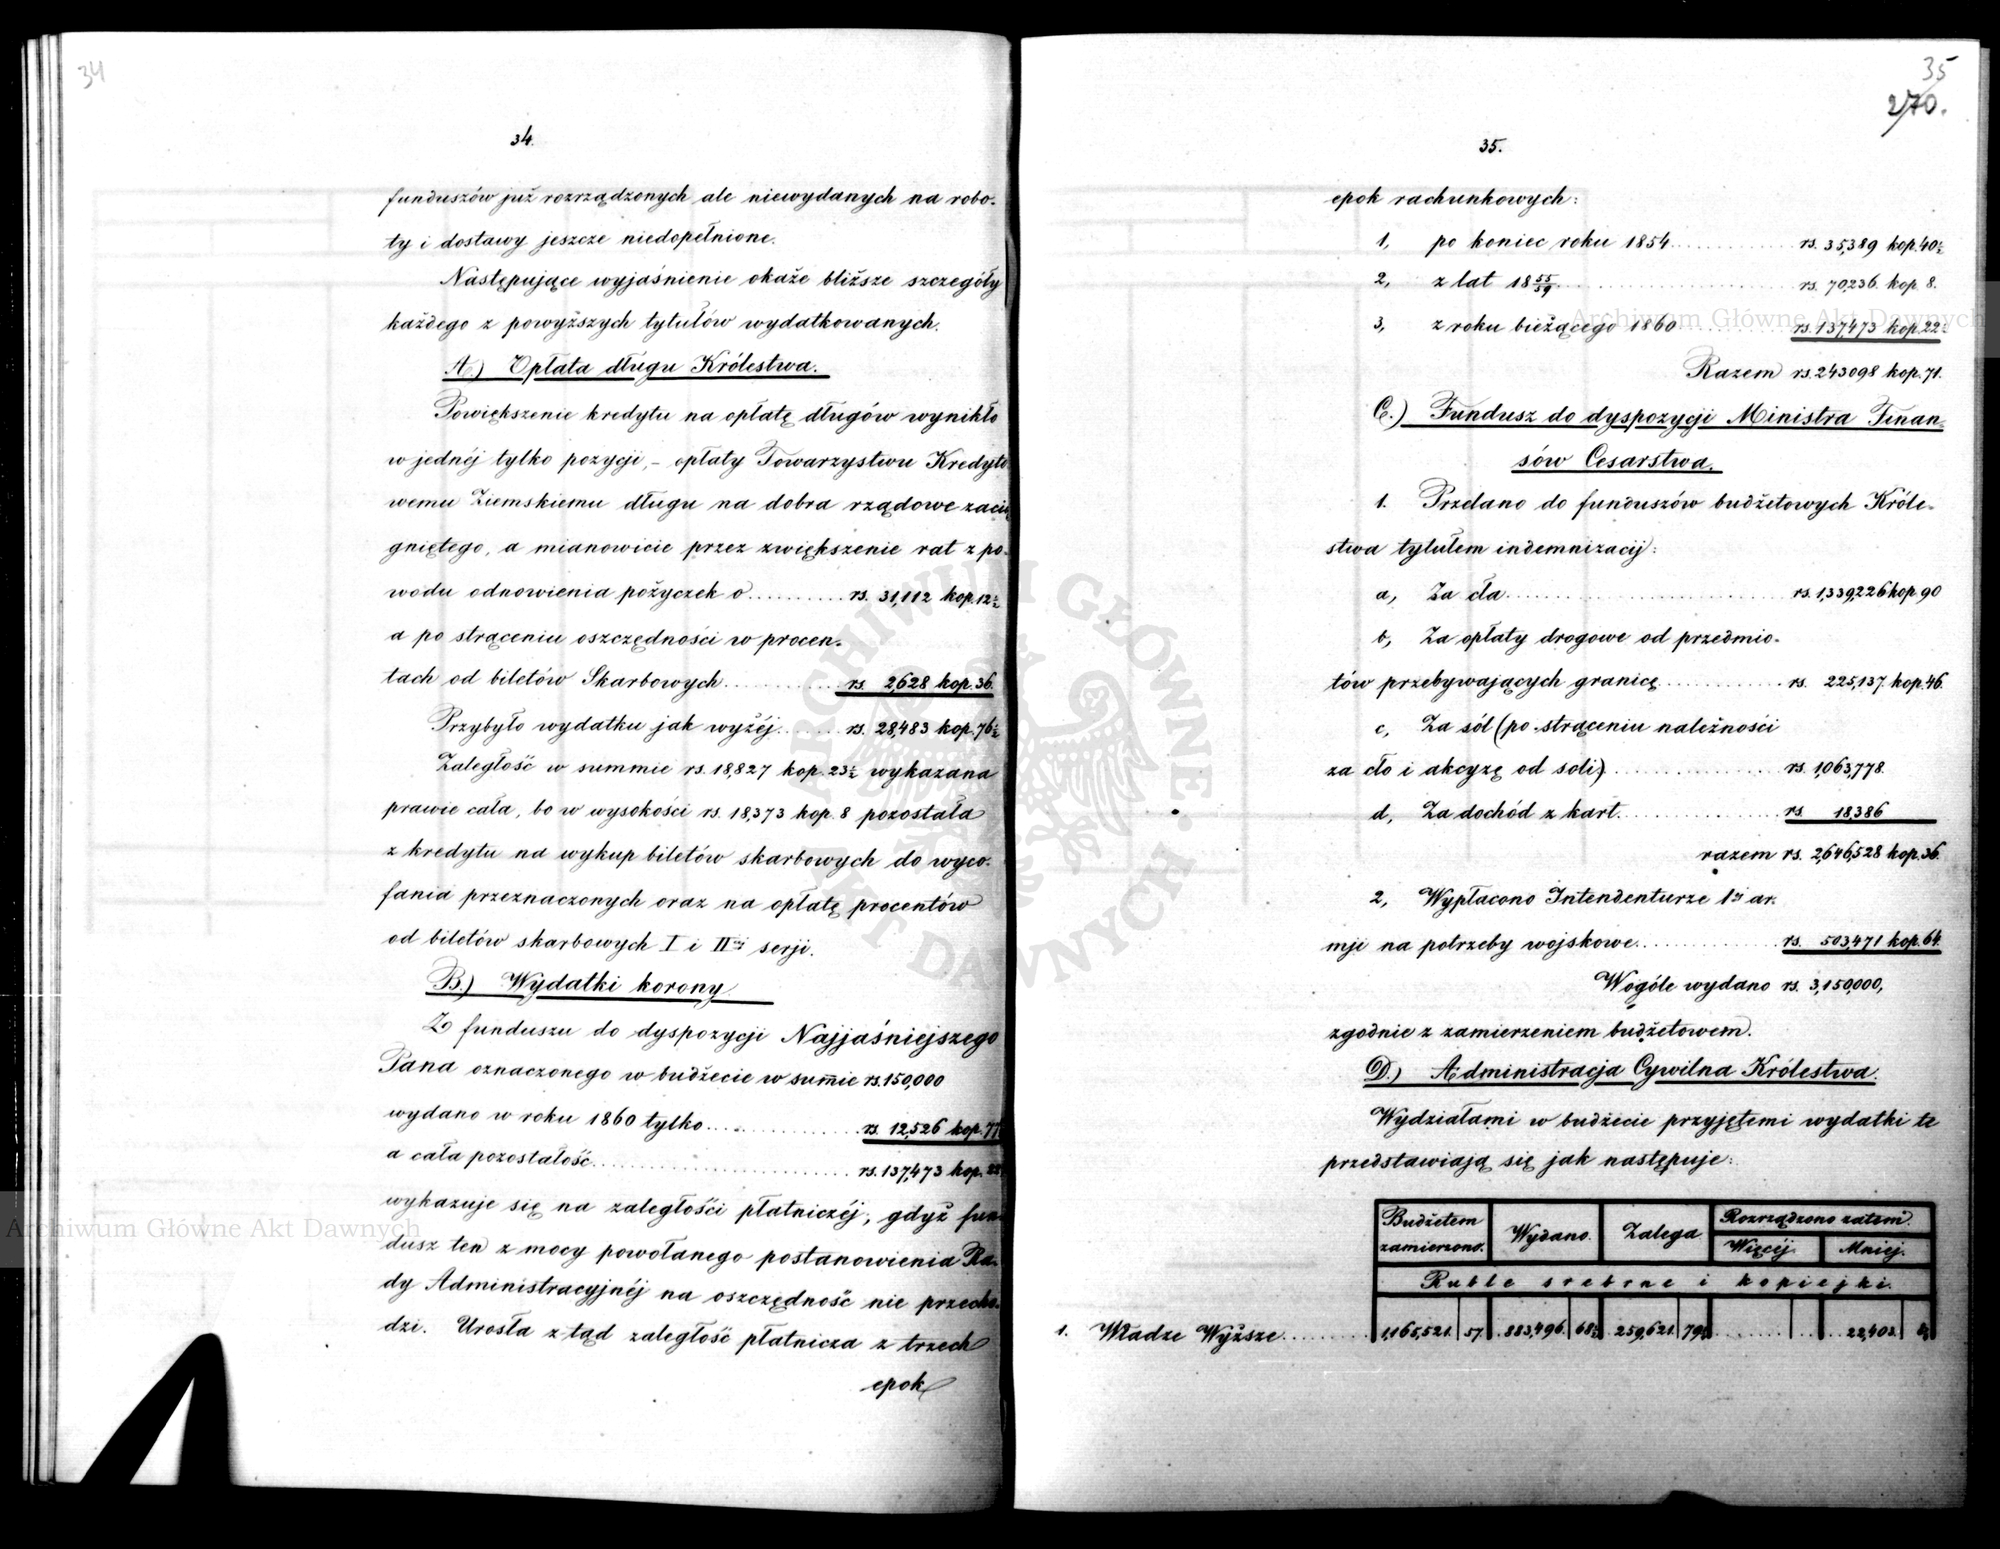 34
34.
funduszów już rozrządzonych ale niewydanych na robo-
ty i dostawy jeszcze niedopełnione.
Następujące wyjaśnienie okaże bliższe szczegóły
każdego z powyższych tytułów wydatkowanych.
A.) Opłata długu Królestwa.
Powiększenie kredytu na opłatę długów wynikło
w jednéj tylko pozycji, - opłaty Towarzystwu Kredyto
wemu Ziemskiemu długu na dobra rządowe zacią
gniętego, a mianowicie przez zwiększenie rat z po-
wodu odnowienia pożyczek o .......... rs. 31,112 kop. 12½
a po strąceniu oszczędności w procen-
tach od biletów Skarbowych .......... rs. 2,628 kop. 36.
Przybyło wydatku jak wyżéj ...... rs. 28,483 kop. 76½
Zaległość w summie rs. 18,827 kop. 23½ wykazana
prawie cała, bo w wysokości rs. 18,373 kop. 8 pozostała
z kredytu na wykup biletów skarbowych do wyco-
fania przeznaczonych oraz na opłatę procentów
od biletów skarbowych I i IIej serji.
B.) Wydatki korony
Z funduszu do dyspozycji Najjaśniejszego
Pana oznaczonego w budżecie w sumie rs. 150,000
wydano w roku 1860 tylko .......... rs. 12,526 kop. 77
a cała pozostałość .......... rs. 137,473 kop. 22
wykazuje się na zaległości płatniczéj, gdyż fun
dusz ten z mocy powołanego postanowienia Ra-
dy Administracyjnéj na oszczędność nie przecho-
dzi. Urosła z tąd zaległość płatnicza z trzech
epok
35
270.
35.
epok rachunkowych:
1, po koniec roku 1854 .......... rs. 35,389 kop. 40½
2, z lat 18 55/59 .......... rs. 70,236. kop. 8.
3, z roku bieżącego 1860 .......... rs. 137,473 kop. 22½
Razem rs. 243098 kop. 71.
C.) Fundusz do dyspozycji Ministra Finan-
sów Cesarstwa.
1. Przelano do funduszów budżetowych Króle-
stwa tytułem indemnizacij:
a, Za cła .......... rs. 1,339,226 kop. 90
b, Za opłaty drogowe od przedmio-
tów przebywających granicę .......... rs. 225,137. kop. 46.
c, Za sól (po strąceniu należności
za cło i akcyzę od soli) .......... rs. 1,063,778.
d, Za dochód z kart .......... rs. 18,386
razem rs. 2,646,528 kop. 36.
2, Wypłacono Intendenturze 1ej ar-
mji na potrzeby wojskowe .......... rs. 503,471 kop. 64.
Wogóle wydano rs. 3,150,000,
zgodnie z zamierzeniem budżetowem.
D.) Administracja Cywilna Królestwa.
Wydziałami w budżecie przyjętemi wydatki te
przedstawiają się jak następuje:
Budżetem zamierzono. Wydano. Zalega Rozrządzono zatem.
Więcéj. Mniej.
Ruble srebrne i kopiejki.
1. Władze Wyższe .......... 1,165,521. 57. 883,496. 68½ 259,621. 79 22,403.
Archiwum Główne Akt Dawnych
Archiwum Główne Akt Dawnych
ARCHIWUM GŁÓWNE AKT DAWNYCH